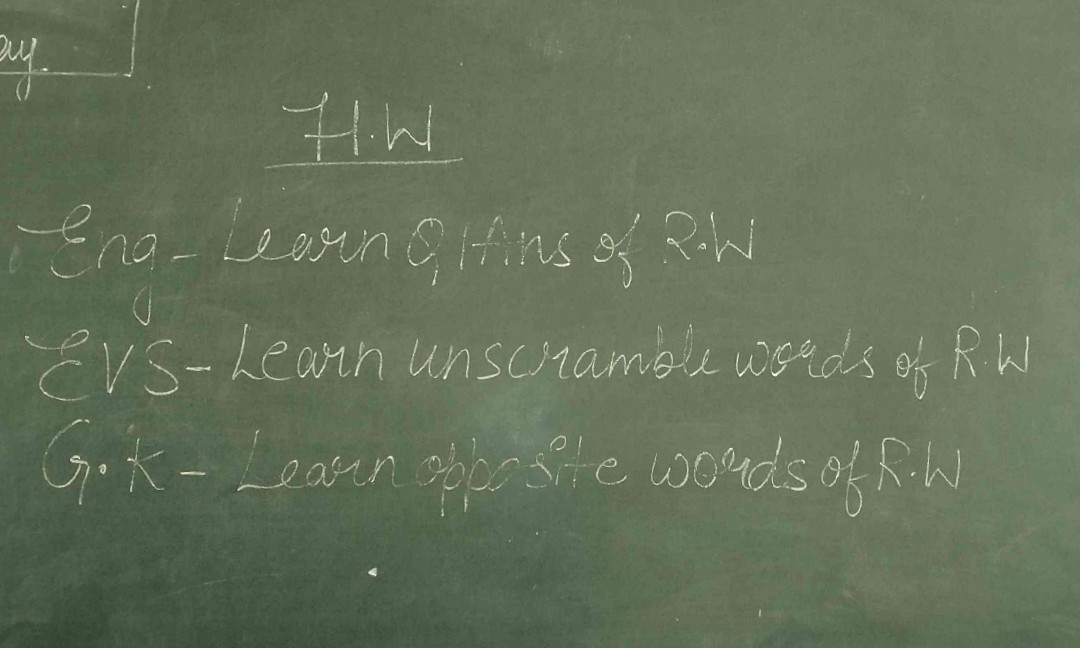 ay
H.W
Eng - Learn Q/Ans of R.W
EVS - Learn unscramble words of R.W
G.K - Learn opposite words of R.W